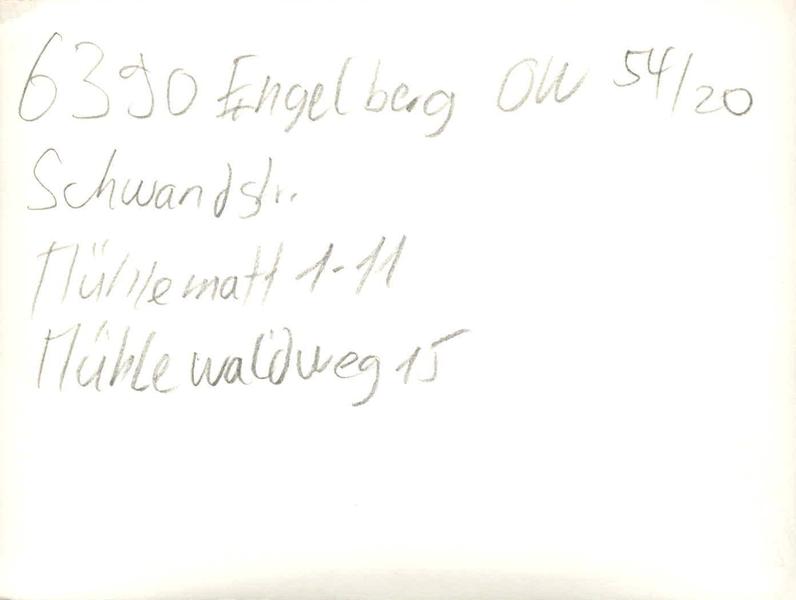 6390 Engelberg OW 54/20
Schwandstr.
Mühlematt 1-11
Mühlewaldweg 15